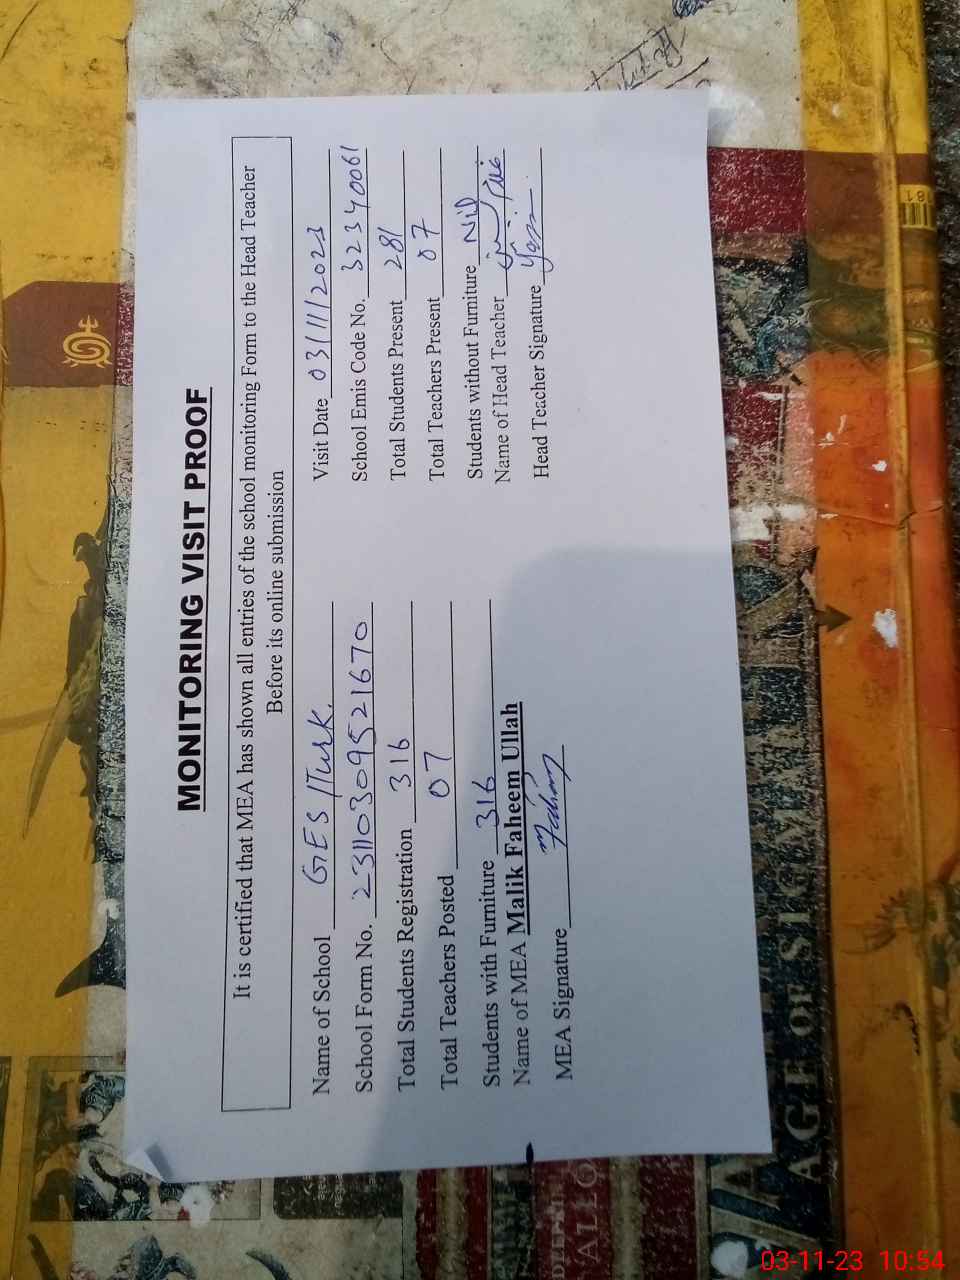 MONITORING VISIT PROOF
It is certified that MEA has shown all entries of the school monitoring Form to the Head Teacher
Before its online submission
Name of School GES /Turk. Visit Date 03/11/2023
School Form No. 2311030952 1670 School Emis Code No. 32340061
Total Students Registration 316 Total Students Present 281
Total Teachers Posted 07 Total Teachers Present 07
Students with Furniture 316 Students without Furniture Nil
Name of MEA Malik Faheem Ullah Name of Head Teacher
MEA Signature Faheem Head Teacher Signature
AGE OF SIGMAR
03-11-23 10:54